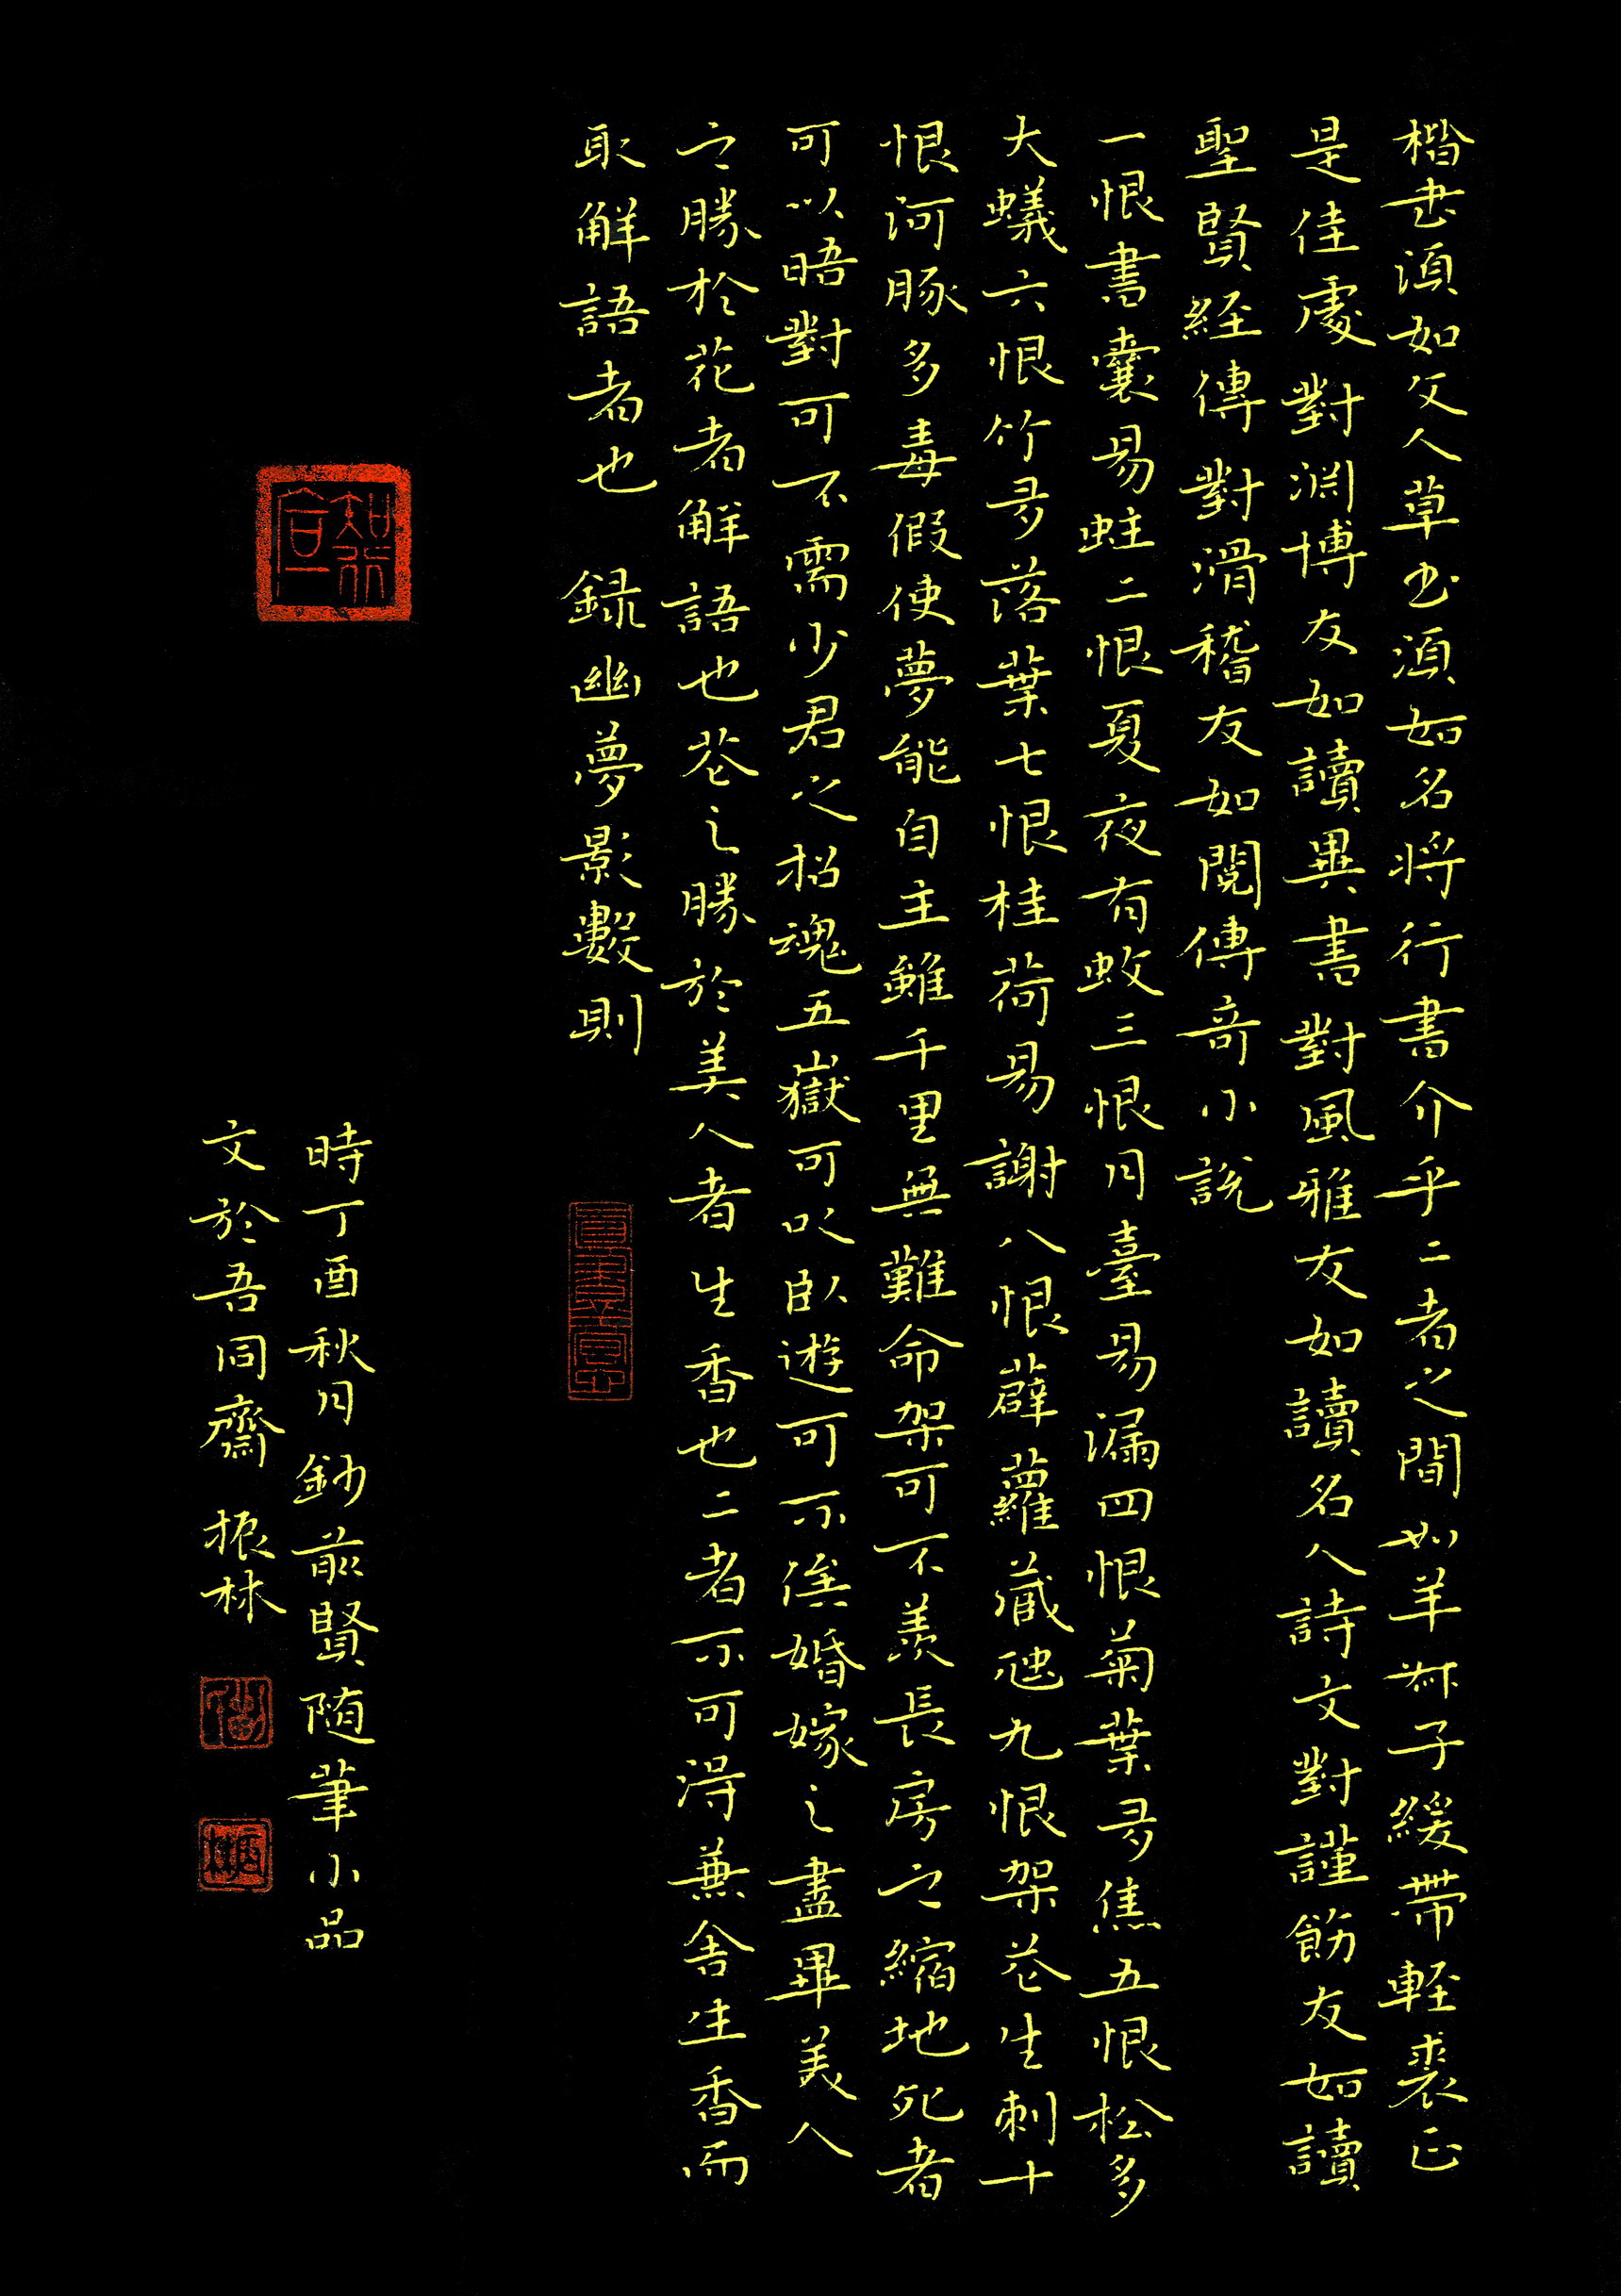 楷书須如文人草书須如名将行書介乎二者之間如羊叔子緩帶輕裘正
是佳處 對渊博友如讀異書對風雅友如讀名人詩文對謹飭友如讀
聖賢経傳對滑稽友如閱傳奇小説
一恨書囊易蛀二恨夏夜有蚊三恨月臺易漏四恨菊葉多焦五恨松多
大蟻六恨竹多落葉七恨桂荷易謝八恨薜蘿藏虺九恨架花生刺十
恨河豚多毒假使夢能自主雖千里無難命架可不羨長房之縮地死者
可以晤對可不需少君之招魂五嶽可以卧遊可不俟婚嫁之盡畢美人
之勝於花者解語也花之勝於美人者生香也二者不可得兼舍生香而
取解語者也 録幽夢影數則
時丁酉秋月鈔前賢随筆小品
文於吾同齋 振林
知行合一